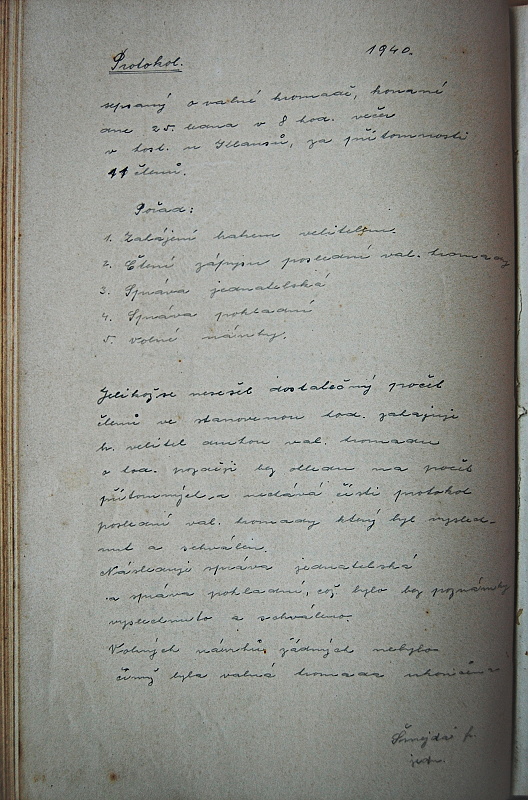 Protokol.
1940.
sepsaný o valné hromadě, konané
dne 25. ledna v 8 hod. večer
v host. u, za přítomnosti
11 členů.
Pořad:
1. Zahájení bratrem velitelem.
2. Čtení zápisu poslední val. hromady
3. Správa jednatelská
4. Správa pokladní
5. volné návrhy.
Jelikož se nesešel dostatečný počet
členů ve stanovenou hod. zahajuje
br. velitel druhou val. hromadu
o hod. později bez ohledu na počet
přítomných, a nechává čísti protokol
poslední val. hromady který byl vyslech-
nut a schválen.
Následuje správa jednatelská
a správa pokladní, což bylo bez poznámky
vyslechnuto a schváleno.
Volných návrhů žádných nebylo
čímž byla valná hromada ukončena
jedn.